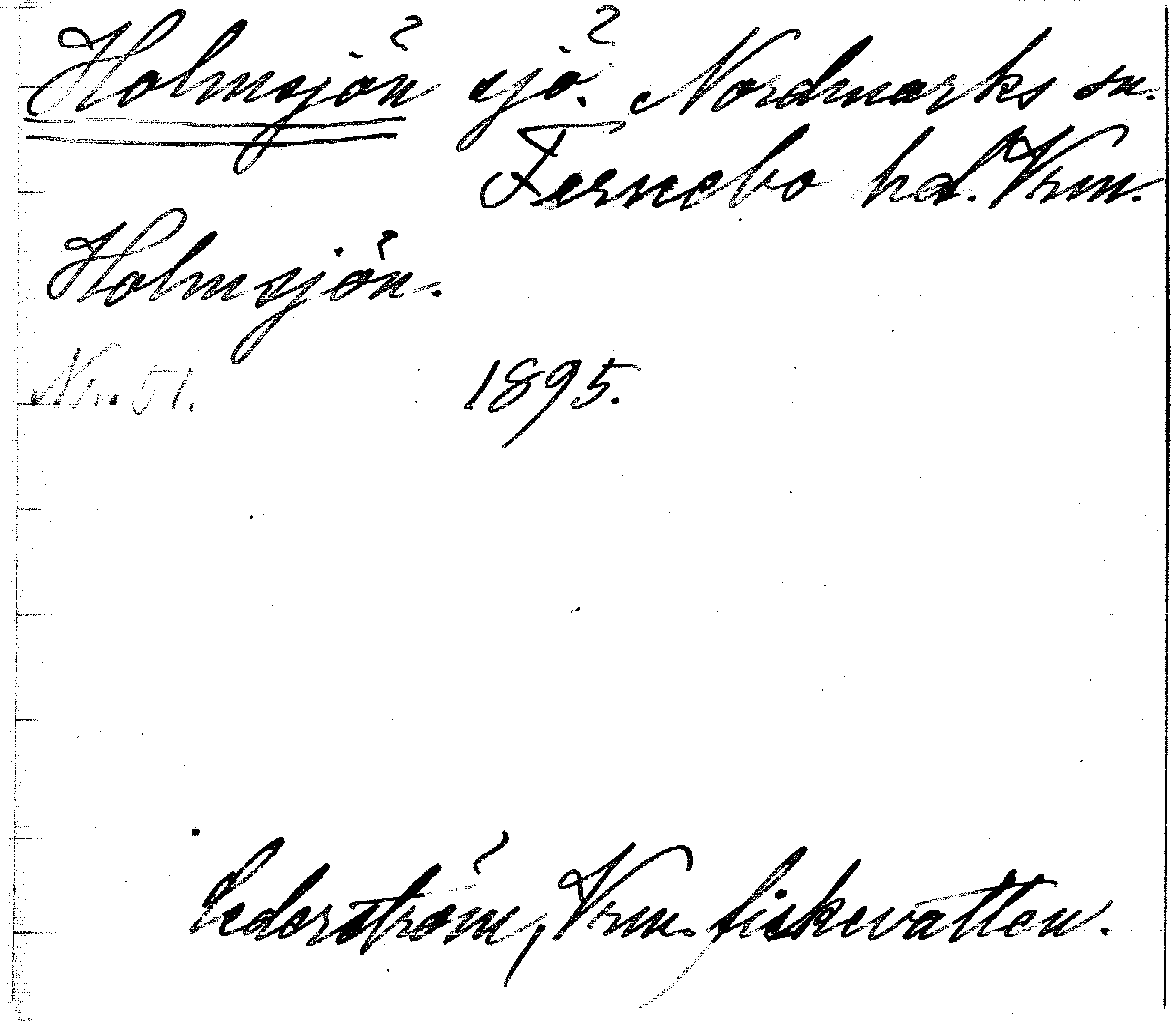 Holmsjön sjö. Nordmarks sn.
Fernebo hd. Vrm.
Holmsjön.
Nr. 51. 1895.
Cederström, Vrm. fiskevatten.